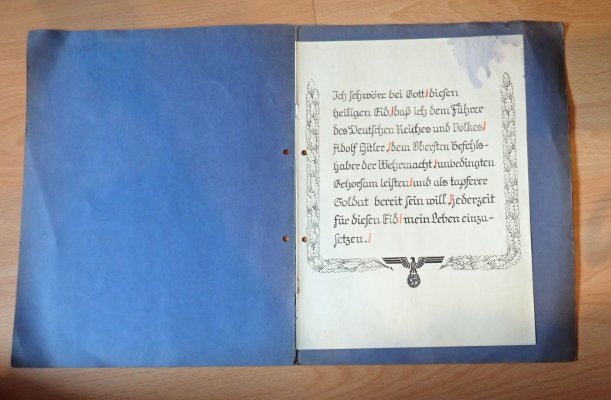 Ich schwöre bei Gott/diesen
heiligen Eid,/daß ich dem Führer
des Deutschen Reiches und Volkes/
Adolf Hitler,/dem Obersten Befehls-
haber der Wehrmacht/unbedingten
Gehorsam leisten/und als tapferer
Soldat bereit sein will,/jederzeit
für diesen Eid/mein Leben einzu-
setzen./